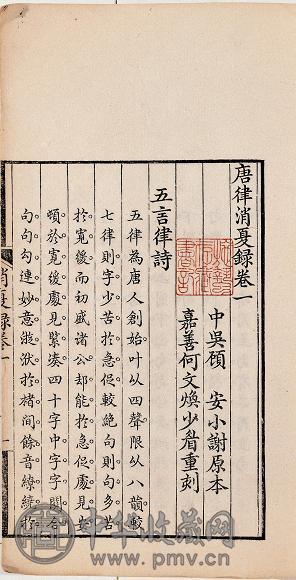 唐律消夏錄卷一
中吳頋　安小謝原本
嘉善何文煥少眉重刻
五言律詩
五律為唐人創始叶以四聲限以八韻較
七律則字少苦於急促較絕句則句多苦
於寬緩而初盛諸公却能於急促處見安
頓於寬緩處見緊湊四十字中字字關合
句句勾連妙意遊泳於楮間餘音繚繞於
消夏錄卷一
一
中华收藏网
www.pmv.cn